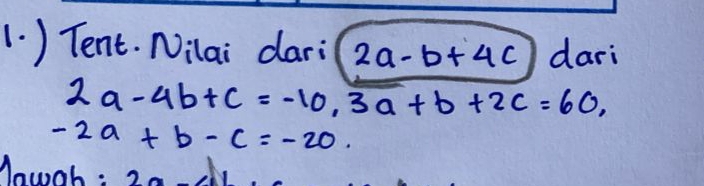 1.) Tent. Nilai dari 2a-b+4c dari
2a-4b+c = -10, 3a+b+2c = 60,
-2a + b - c = -20.
Jawab : 2a